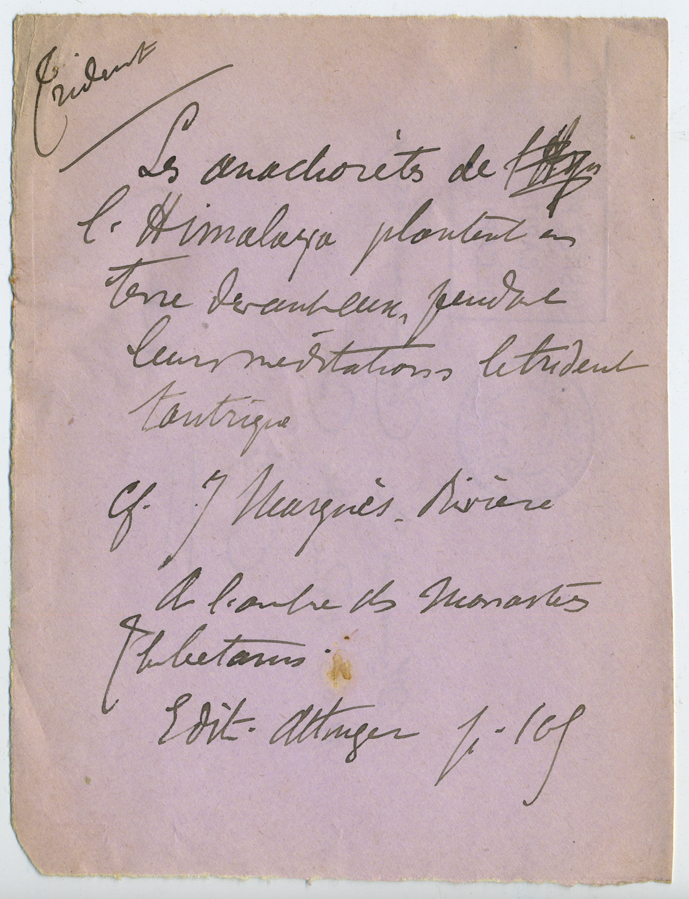 Trident
Les anachorètes de
l'Himalaya plantent en
terre devant eux, pendant
leurs méditations le trident
tantrique
cf. J Marquès-Rivière
A l'ombre des Monastères
Thibetains.
Edit. Attinger p. 105